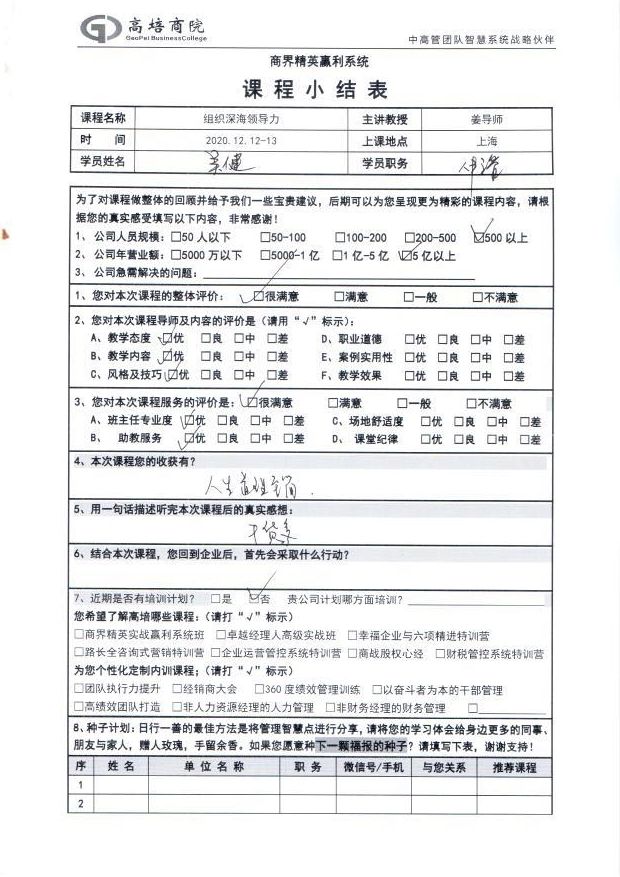 高培商院
GaoPei BusinessCollege
中高管团队智慧系统战略伙伴
商界精英赢利系统
课程小结表
课程名称 组织深海领导力 主讲教授 姜导师
时 间 2020.12.12-13 上课地点 上海
学员姓名 吴健 学员职务
为了对课程做整体的回顾并给予我们一些宝贵建议，后期可以为您呈现更为精彩的课程内容，请根
据您的真实感受填写以下内容，非常感谢！
1、公司人员规模：□50人以下 □50-100 □100-200 □200-500 ☑500以上
2、公司年营业额：□5000万以下 □5000-1亿 □1亿-5亿 ☑5亿以上
3、公司急需解决的问题：
1、您对本次课程的整体评价： ☑很满意 □满意 □一般 □不满意
2、您对本次课程导师及内容的评价是（请用“√”标示）：
A、教学态度 ☑优 □良 □中 □差 D、职业道德 □优 □良 □中 □差
B、教学内容 ☑优 □良 □中 □差 E、案例实用性 □优 □良 □中 □差
C、风格及技巧 ☑优 □良 □中 □差 F、教学效果 □优 □良 □中 □差
3、您对本次课程服务的评价是：☑很满意 □满意 □一般 □不满意
A、班主任专业度 ☑优 □良 □中 □差 C、场地舒适度 □优 □良 □中 □差
B、 助教服务 ☑优 □良 □中 □差 D、 课堂纪律 □优 □良 □中 □差
4、本次课程您的收获有？
人生
5、用一句话描述听完本次课程后的真实感想：
干货多
6、结合本次课程，您回到企业后，首先会采取什么行动？
7、近期是否有培训计划？ □是 ☑否 贵公司计划哪方面培训？
您希望了解高培哪些课程：（请打“√”标示）
□商界精英实战赢利系统班 □卓越经理人高级实战班 □幸福企业与六项精进特训营
□路长全咨询式营销特训营 □企业运营管控系统特训营 □商战股权心经 □财税管控系统特训营
为您个性化定制内训课程；（请打“√”标示）
□团队执行力提升 □经销商大会 □360度绩效管理训练 □以奋斗者为本的干部管理
□高绩效团队打造 □非人力资源经理的人力管理 □非财务经理的财务管理 □
8、种子计划：日行一善的最佳方法是将管理智慧点进行分享，请将您的学习体会给身边更多的同事、
朋友与家人，赠人玫瑰，手留余香。如果您愿意种下一颗福报的种子？请填写下表，谢谢支持！
序 姓 名 单 位 名 称 职 务 微信号/手机 与您关系 推荐课程
1
2